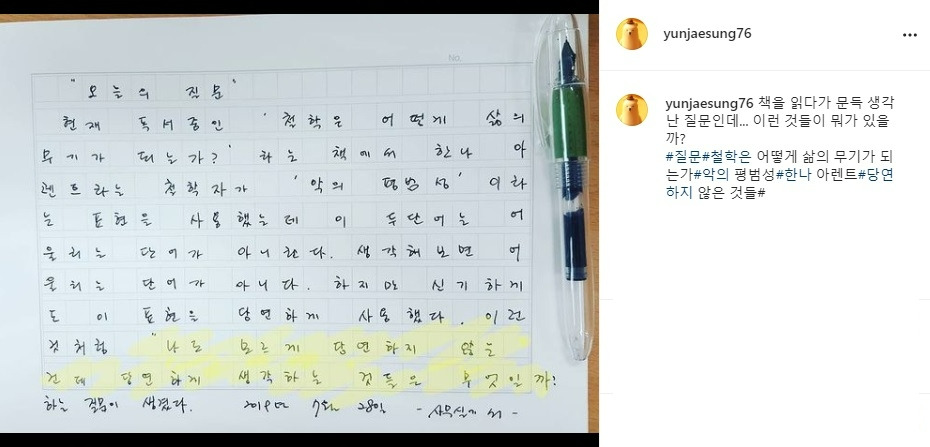 No.
"오늘의 질문"
현재 독서중인 '철학은 어떻게 삶의
무기가 되는가?' 라는 책에서 한나 아
렌트라는 철학자가 '악의 평범성' 이라
는 표현을 사용했는데 이 두단어는 어
울리는 단어가 아니란다. 생각해보면 어
울리는 단어가 아니다. 하지만 신기하게
도 이 표현을 당연하게 사용했다. 이런
것처럼 "나도 모르게 당연하지 않는
건데 당연하게 생각하는 것들은 무엇일까?
하는 질문이 생겼다. 2019년 7월 28일 - 사무실에서 -
yunjaesung76
yunjaesung76 책을 읽다가 문득 생각
난 질문인데... 이런 것들이 뭐가 있을
까?
#질문#철학은 어떻게 삶의 무기가 되
는가#악의 평범성#한나 아렌트#당연
하지 않은 것들#